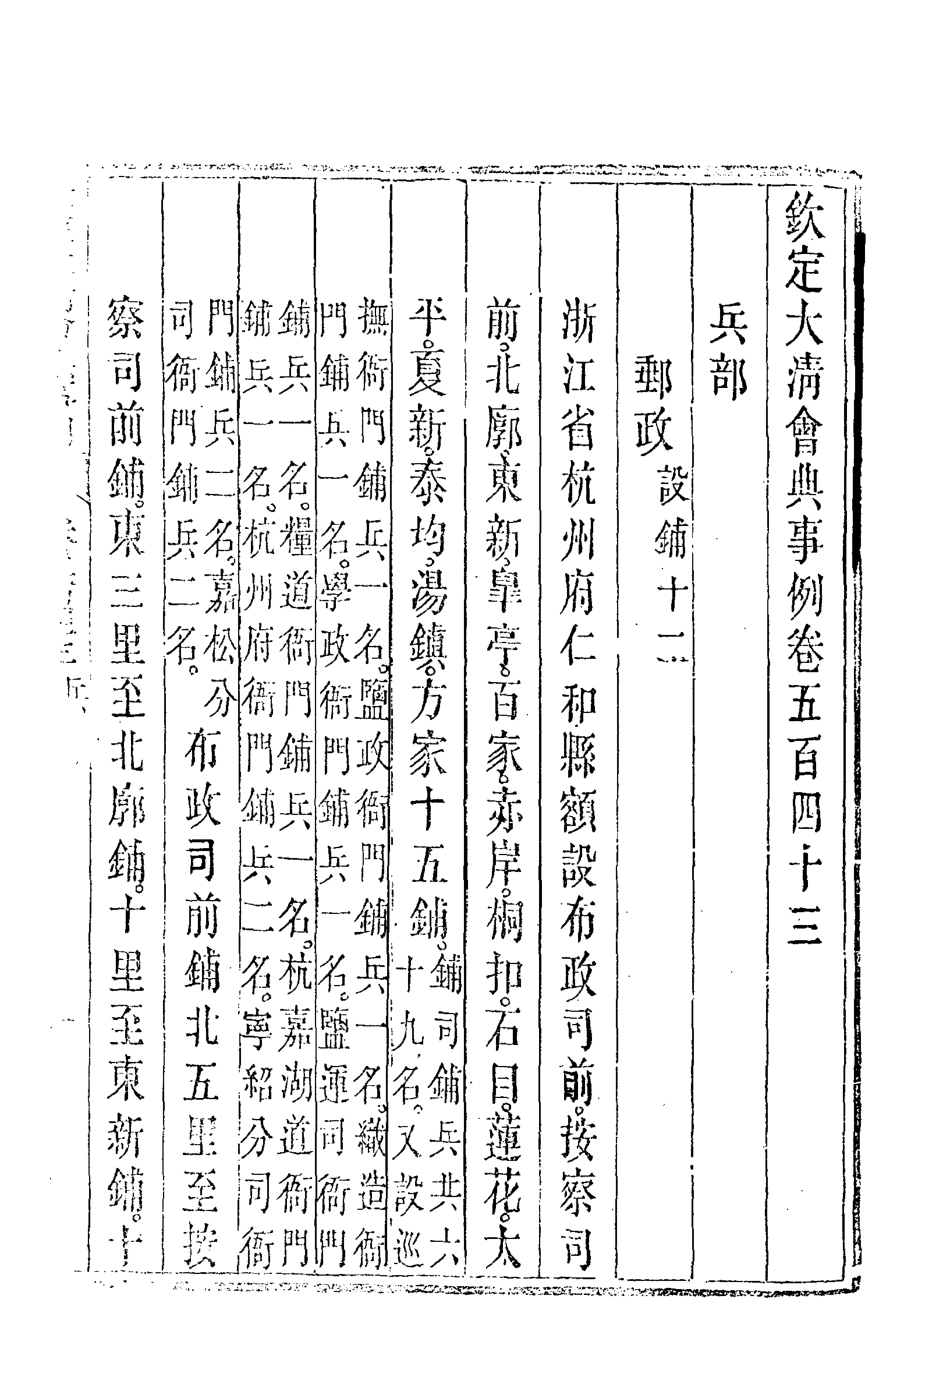 欽定大淸會典事例卷五百四十三
兵部
郵政設鋪十二
浙江省杭州府仁和縣額設布政司前。按察司
前。北廓。東新。皐亭。百家。赤岸。桐扣。石目。蓮花。太
平。夏新。泰均。湯鎮。方家十五鋪。鋪司鋪兵共六
十九名。又設巡
撫衙門鋪兵一名。鹽政衙門鋪兵一名。織造衙
門鋪兵一名。學政衙門鋪兵一名。鹽運司衙門
鋪兵一名。糧道衙門鋪兵一名。杭嘉湖道衙門
鋪兵一名。杭州府衙門鋪兵二名。寧紹分司衙
門鋪兵二名。嘉松分
司衙門鋪兵二名。布政司前鋪北五里至按
察司前鋪。東三里至北廓鋪。十里至東新鋪。十